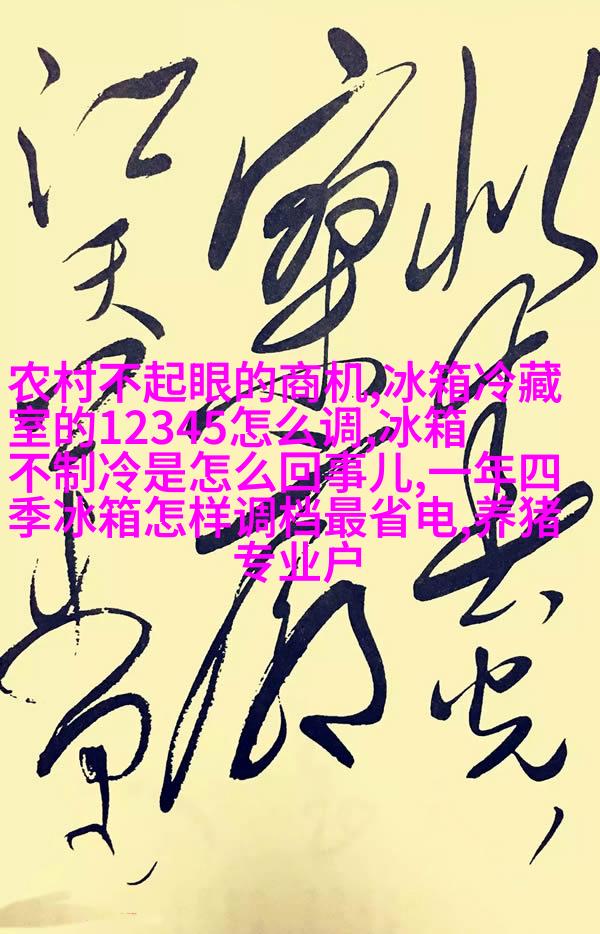 似春光,
寥廓
江天万里霜
农村不起眼的商机,冰箱冷藏
室的12345怎么调,冰箱
不制冷是怎么回事儿,一年四
季冰箱怎样调档最省电,养猪
专业户